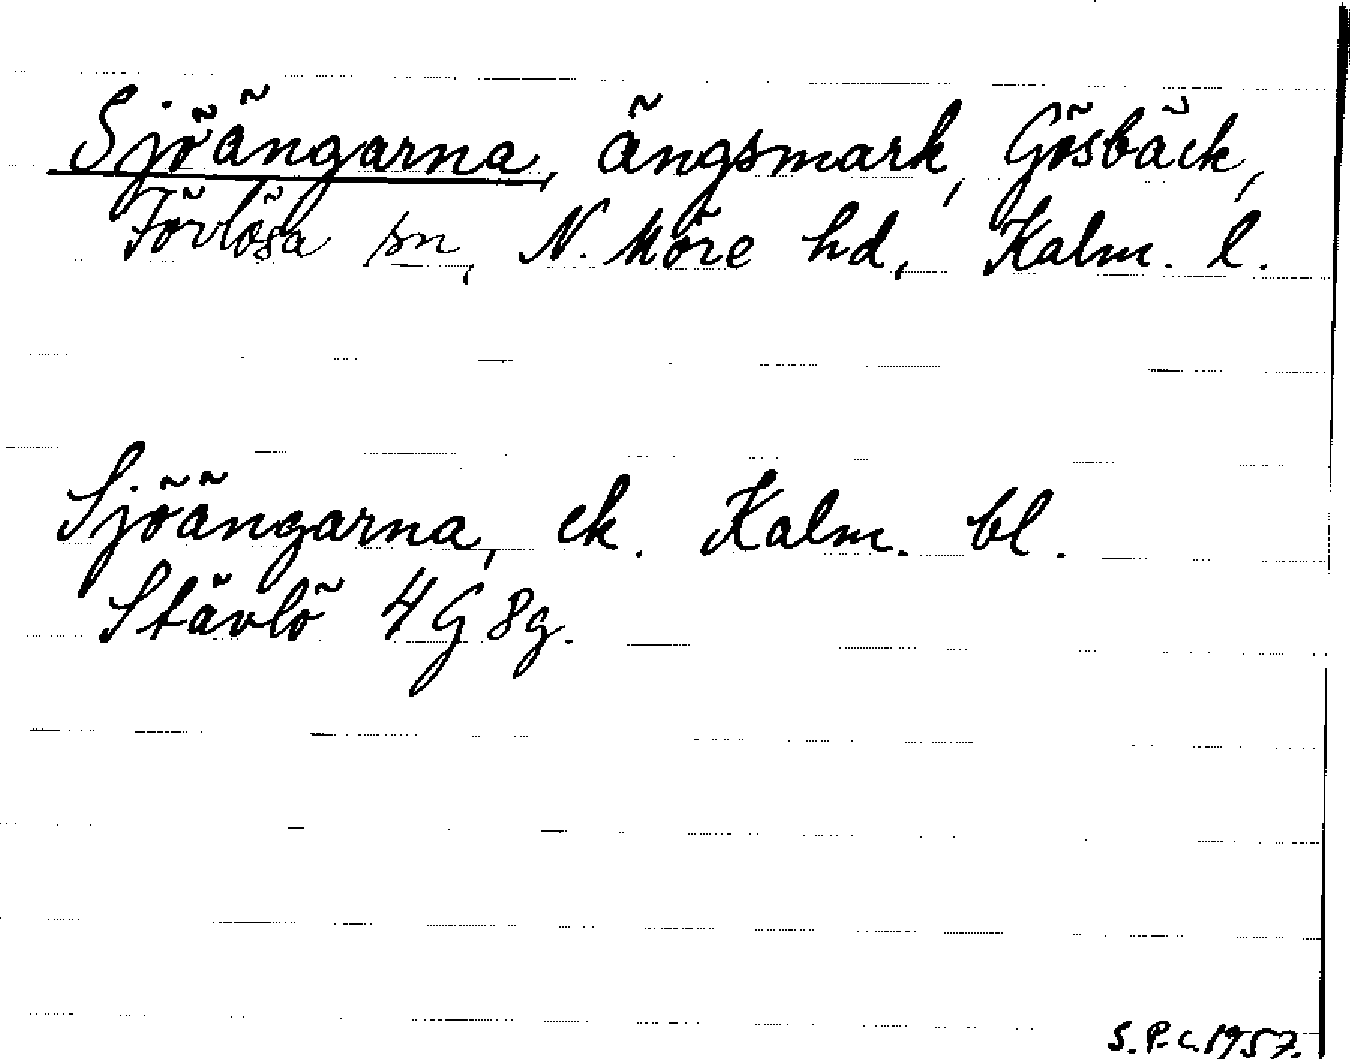 Sjöängarna, ängsmark, Gösbäck,
Förlösa sn, N. Möre hd, Kalm. l.
Sjöängarna, ek. Kalm. bl.
Stävlö 4G 8g.
S.P.c. 1957.